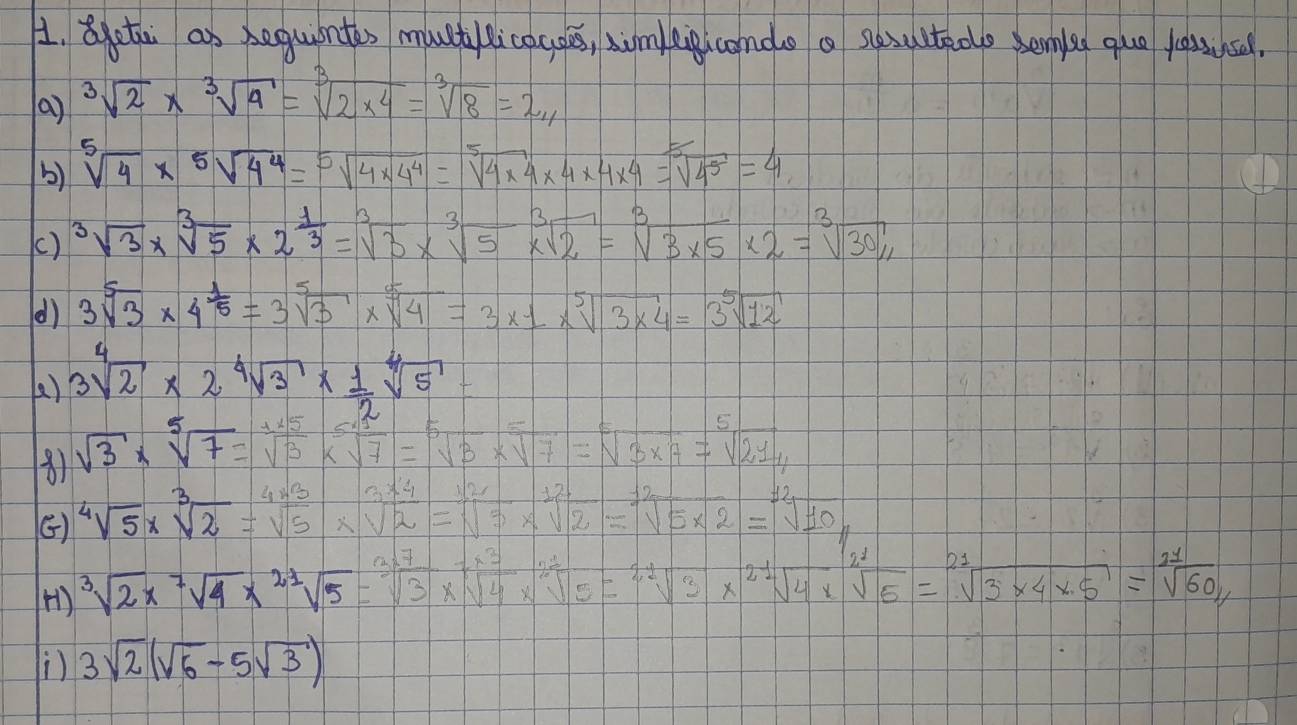 1. Efetui as seguintes multiplicações, simplificando o resultado sempre que possível.
a) ³√2 × ³√4 = ³√(2×4) = ³√8 = 2,,
b) ⁵√4 × ⁵√4⁴ = ⁵√(4×4⁴) = ⁵√(4×4×4×4×4) = ⁵√4⁵ = 4
c) ³√3 × ³√5 × 2^(1/3) = ³√3 × ³√5 × ³√2 = ³√(3×5×2) = ³√30,,
d) 3⁵√3 × 4^(1/5) = 3⁵√3 × ⁵√4 = 3×1×⁵√(3×4) = 3⁵√12
e) 3⁴√2 × 2⁴√3 × 1/2 ⁴√5 =
f) √3 × ⁵√7 = ¹ˣ⁵√3 × ⁵ˣ¹√7 = ⁵√3 × ⁵√7 = ⁵√(3×7) = ⁵√21,,
G) ⁴√5 × ³√2 = ⁴ˣ³√5 × ³ˣ⁴√2 = ¹²√5 × ¹²√2 = ¹²√(5×2) = ¹²√10,,
H) ³√2 × ⁷√4 × ²¹√5 = ³ˣ⁷√3 × ⁷ˣ³√4 × ²¹√5 = ²¹√3 × ²¹√4 × ²¹√5 = ²¹√(3×4×5) = ²¹√60,,
i) 3√2(√6 - 5√3)